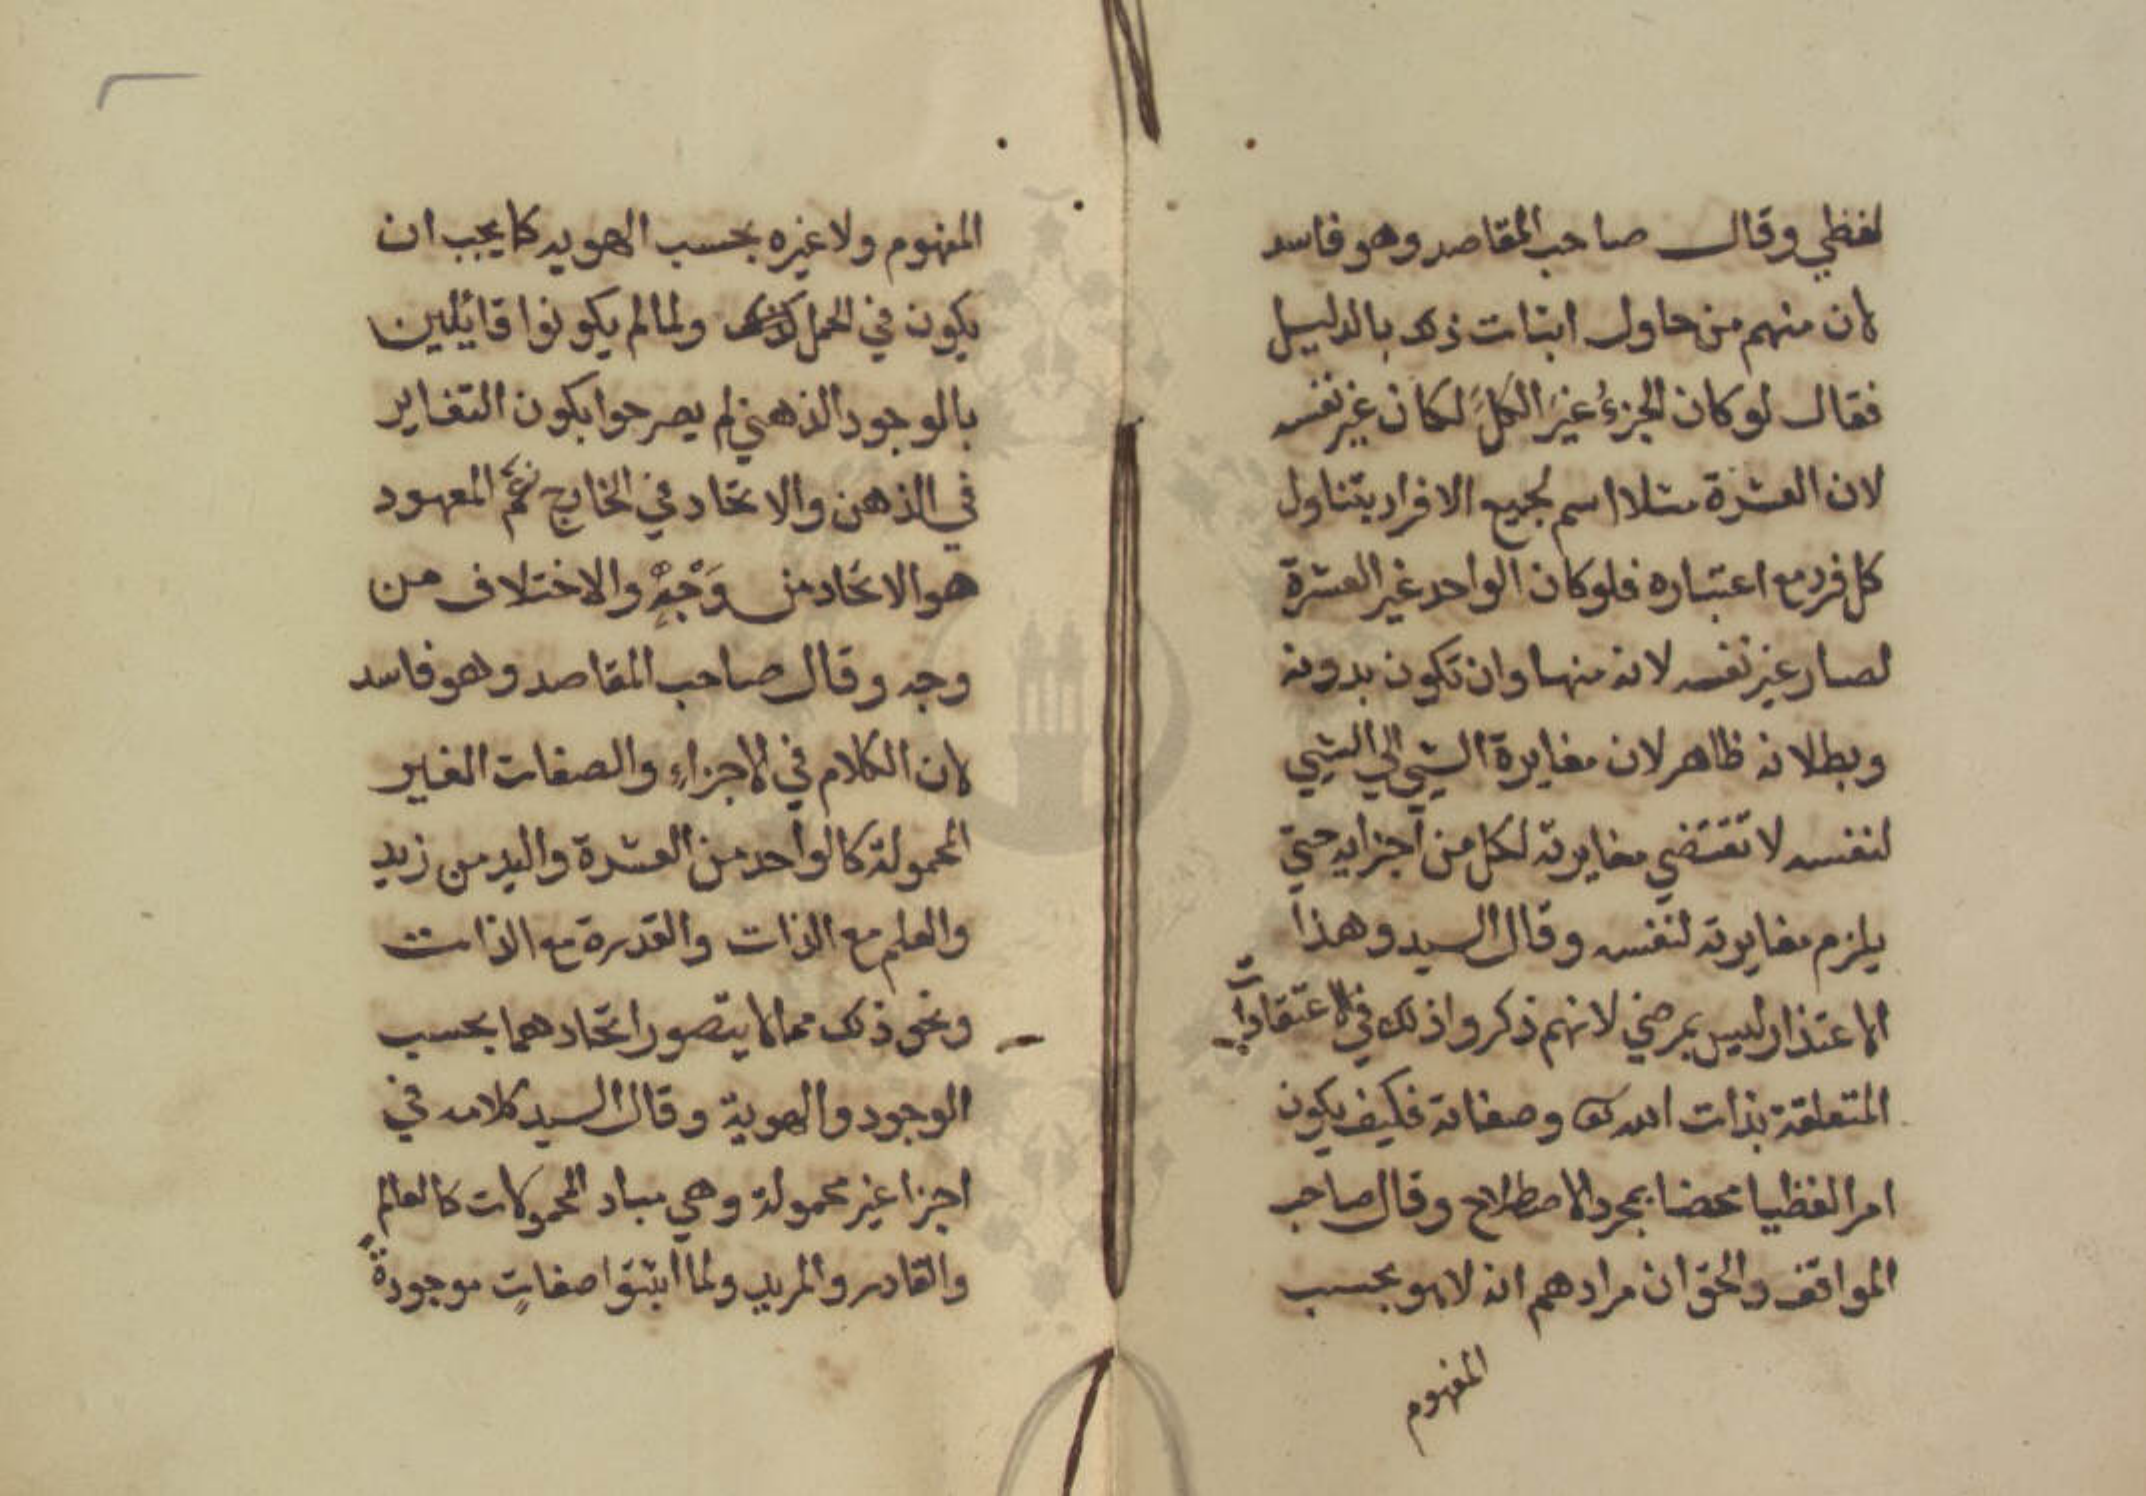 لفظي وقال صاحب المقاصد وهو فاسد
لان منهم من حاول اثبات ذلك بالدليل
فقال لو كان الجزءُ غيرَ الكلَ لكان غير نفسه
لان العشرة مثلا اسم لجميع الافراد يتناول
كل فرد مع اعتباره فلو كان الواحد غير العشرة
لصار غير نفسه لانه منها وان تكون بدونه
وبطلانه ظاهر لان مغايرة الشي الي الشي
لنفسه لا تقتضي مغايرته لكل من اجزايه حتي
يلزم مغايرته لنفسه وقال السيد وهذا
الاعتذار ليس بمرضي لانهم ذكروا ذلك في الاعتقادات
المتعلقة بذات الله تعا وصفاته فكيف يكون
امرا لفظيا محضا بمجرد الاصطلاح وقال صاحب
المواقف والحق ان مرادهم انه لا هو بحسب
المفهوم
المفهوم ولا غيره بحسب الهويه كما يجب ان
يكون في الحمل ولما لم يكونوا قائلين
بالوجود الذهني لم يصرحوا بكون التغاير
في الذهن والاتحاد في الخارج نعَم المعهود
هو الاتحاد من وَجْهٍ والاختلاف من
وجه وقال صاحب المقاصد وهو فاسد
لان الكلام في الاجزاءِ والصفات الغير
المحمولة كالواحد من العشرة واليد من زيد
والعلم مع الذات والقدرة مع الذات
ونحو ذلك مما لا يتصور اتحادهما بحسب
الوجود والهوية وقال السيد كلامه في
اجزا غير محمولة وهي مباد المحمولات كالعالم
والقادر والمريد ولما اثبتوا صفاتٍ موجودةً